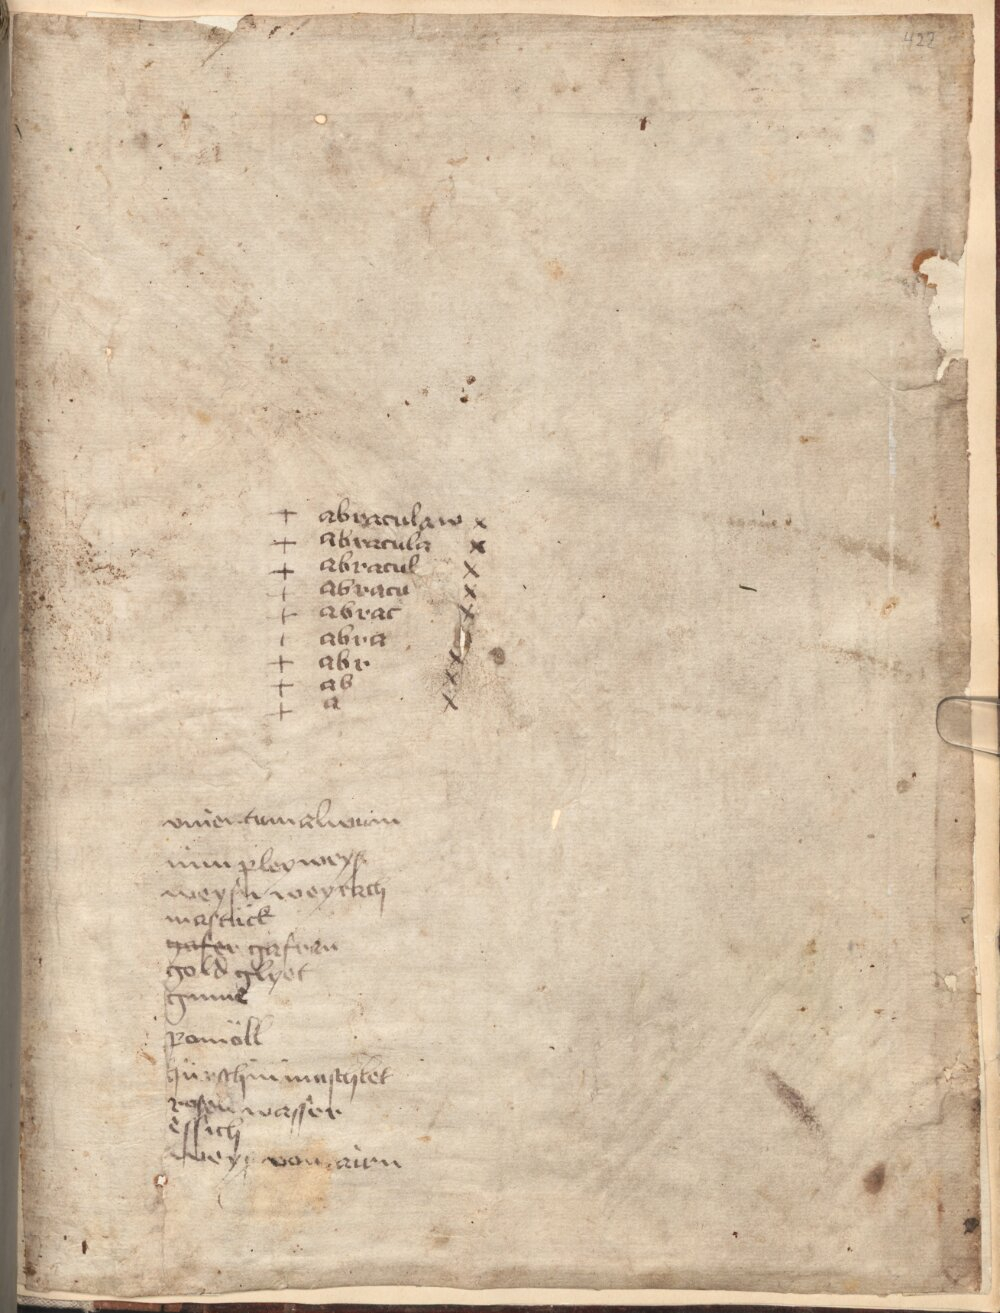 422
+ abraculaw x
+ abracula x
+ abracul x
+ abracu x
+ abrac x
+ abra
+ abr x
+ ab x
+ a x
nim pleyweyß
weyssn weyrach
mastick
gafer gafran
gold glyet
pamöll
rosen wasser
essich
weyß von airn